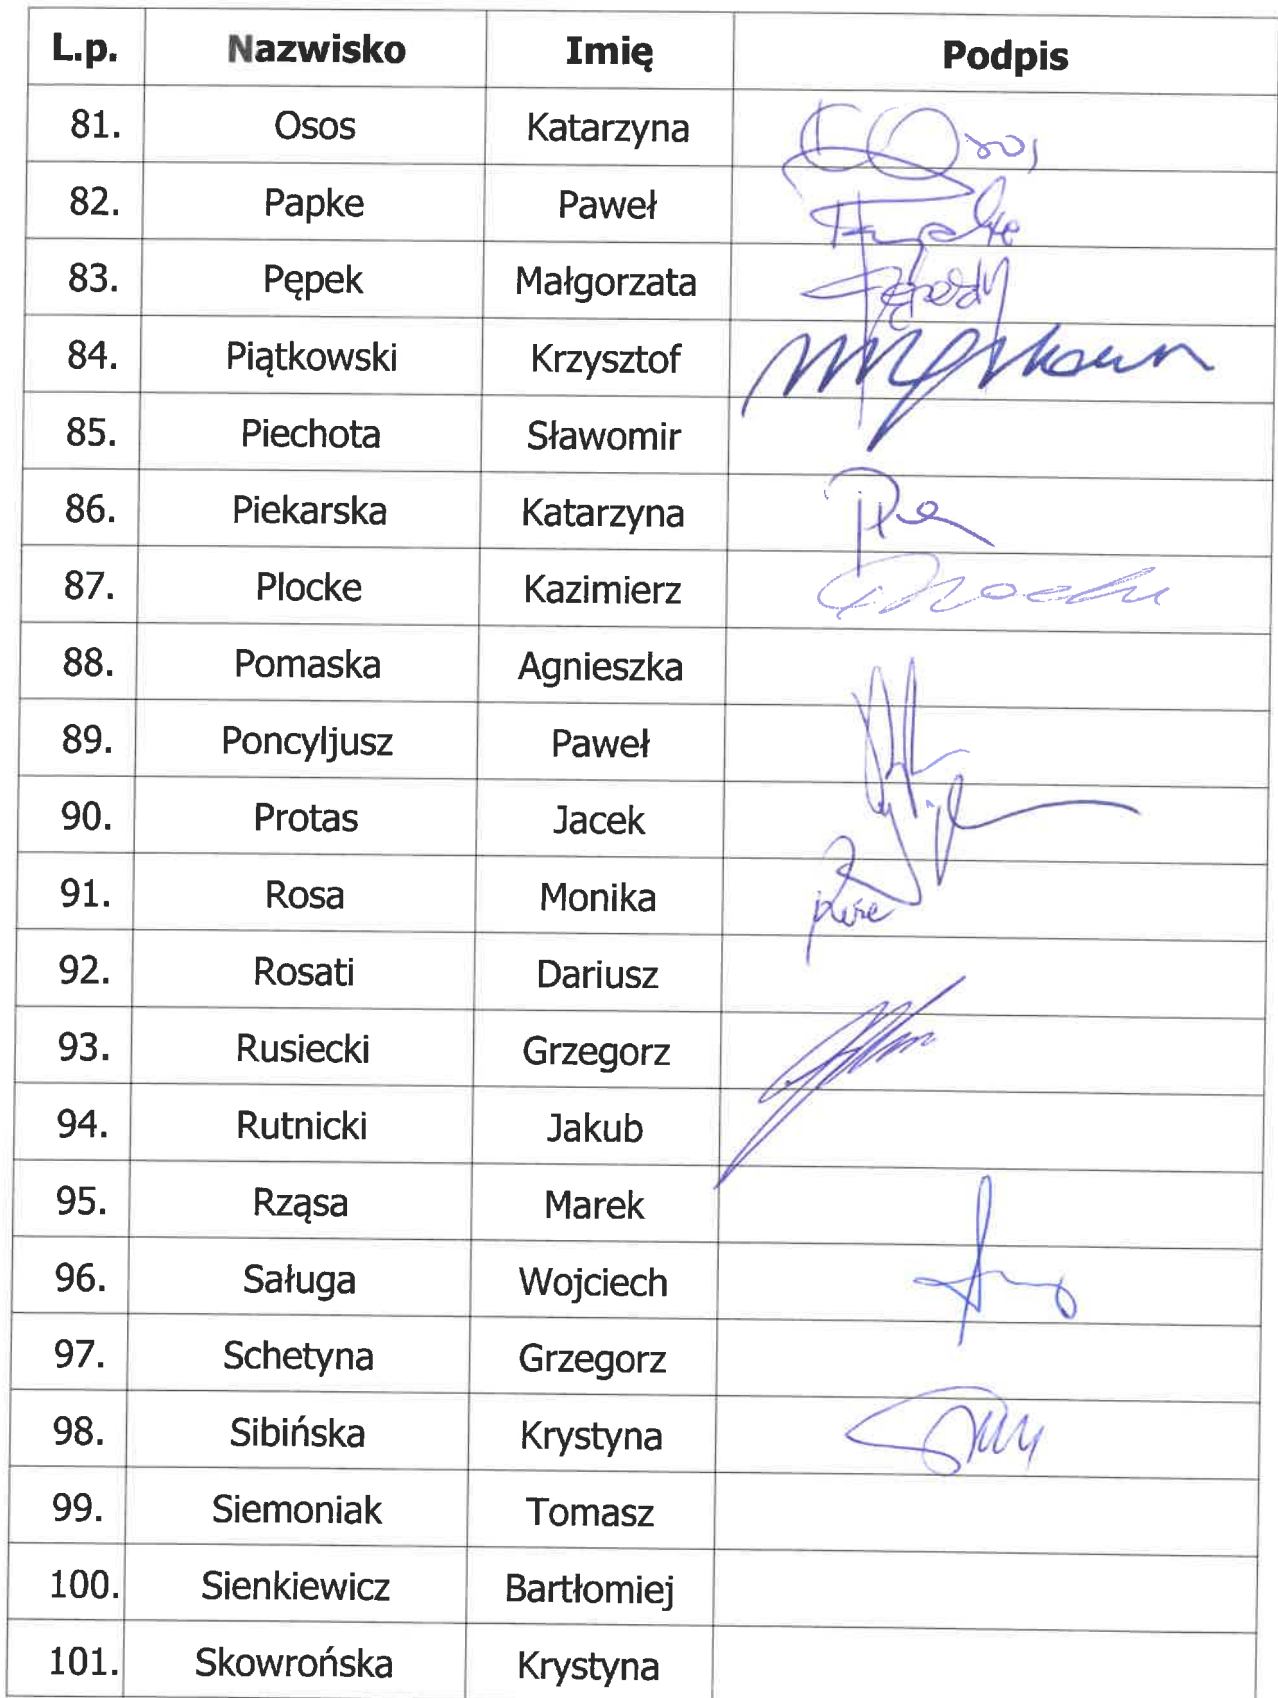 L.p. Nazwisko Imię Podpis
81. Osos Katarzyna
82. Papke Paweł
83. Pępek Małgorzata
84. Piątkowski Krzysztof
85. Piechota Sławomir
86. Piekarska Katarzyna
87. Plocke Kazimierz
88. Pomaska Agnieszka
89. Poncyljusz Paweł
90. Protas Jacek
91. Rosa Monika
92. Rosati Dariusz
93. Rusiecki Grzegorz
94. Rutnicki Jakub
95. Rząsa Marek
96. Saługa Wojciech
97. Schetyna Grzegorz
98. Sibińska Krystyna
99. Siemoniak Tomasz
100. Sienkiewicz Bartłomiej
101. Skowrońska Krystyna